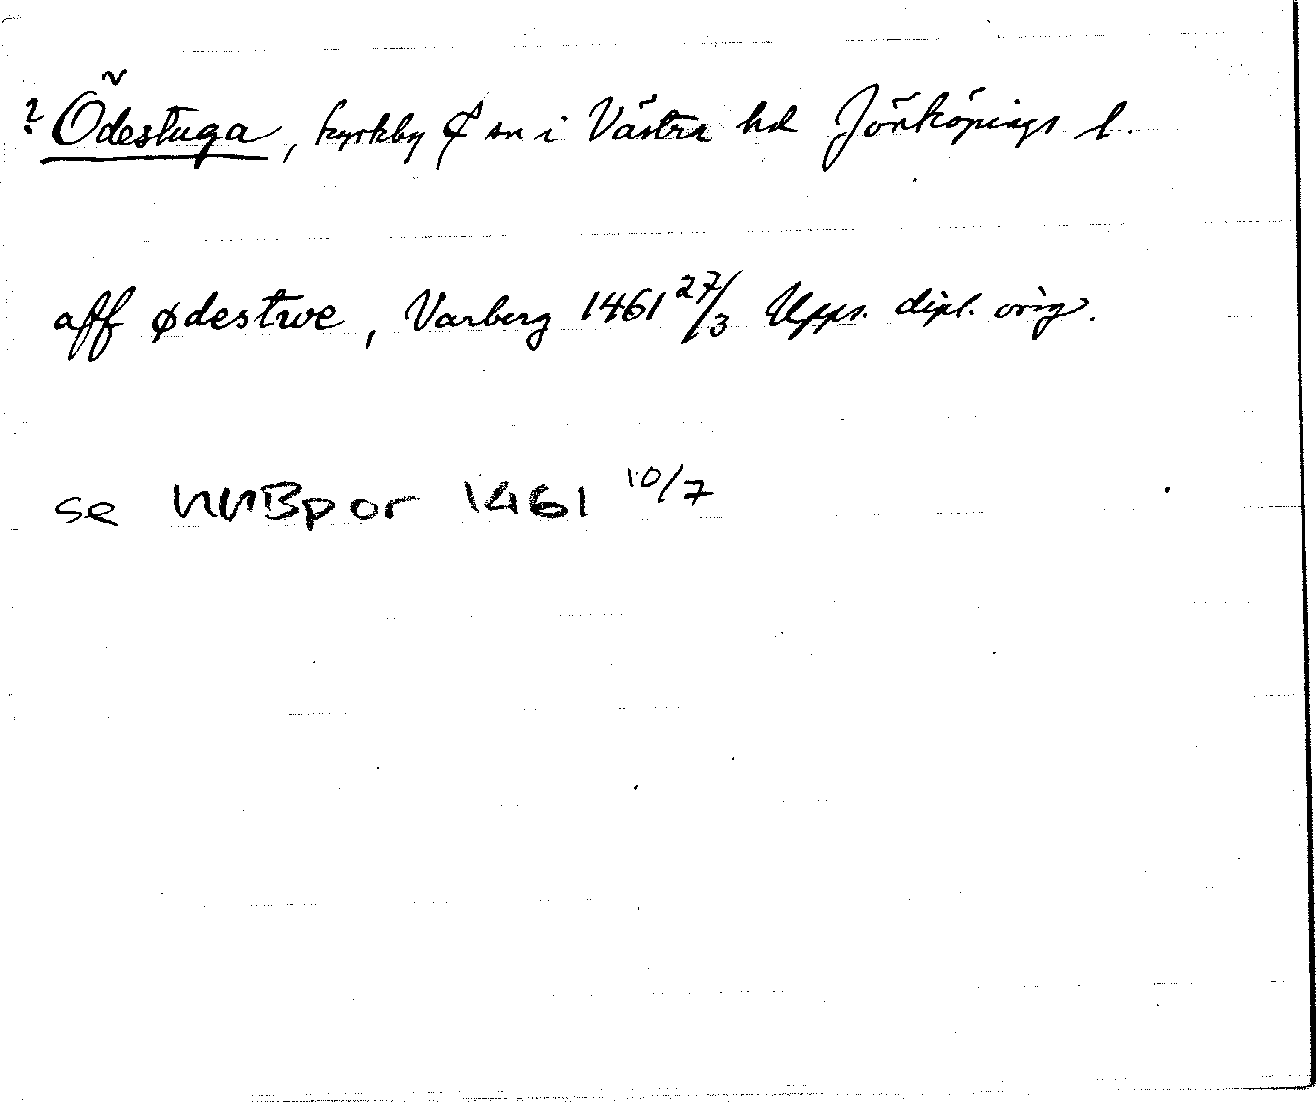 ? Ödestuga, kyrkby & sn i Västra hd Jönköpings l.
aff ødestwe, Varberg 1461 27/3 Upps. dipl. orig.
se UUBp or 1461 10/7